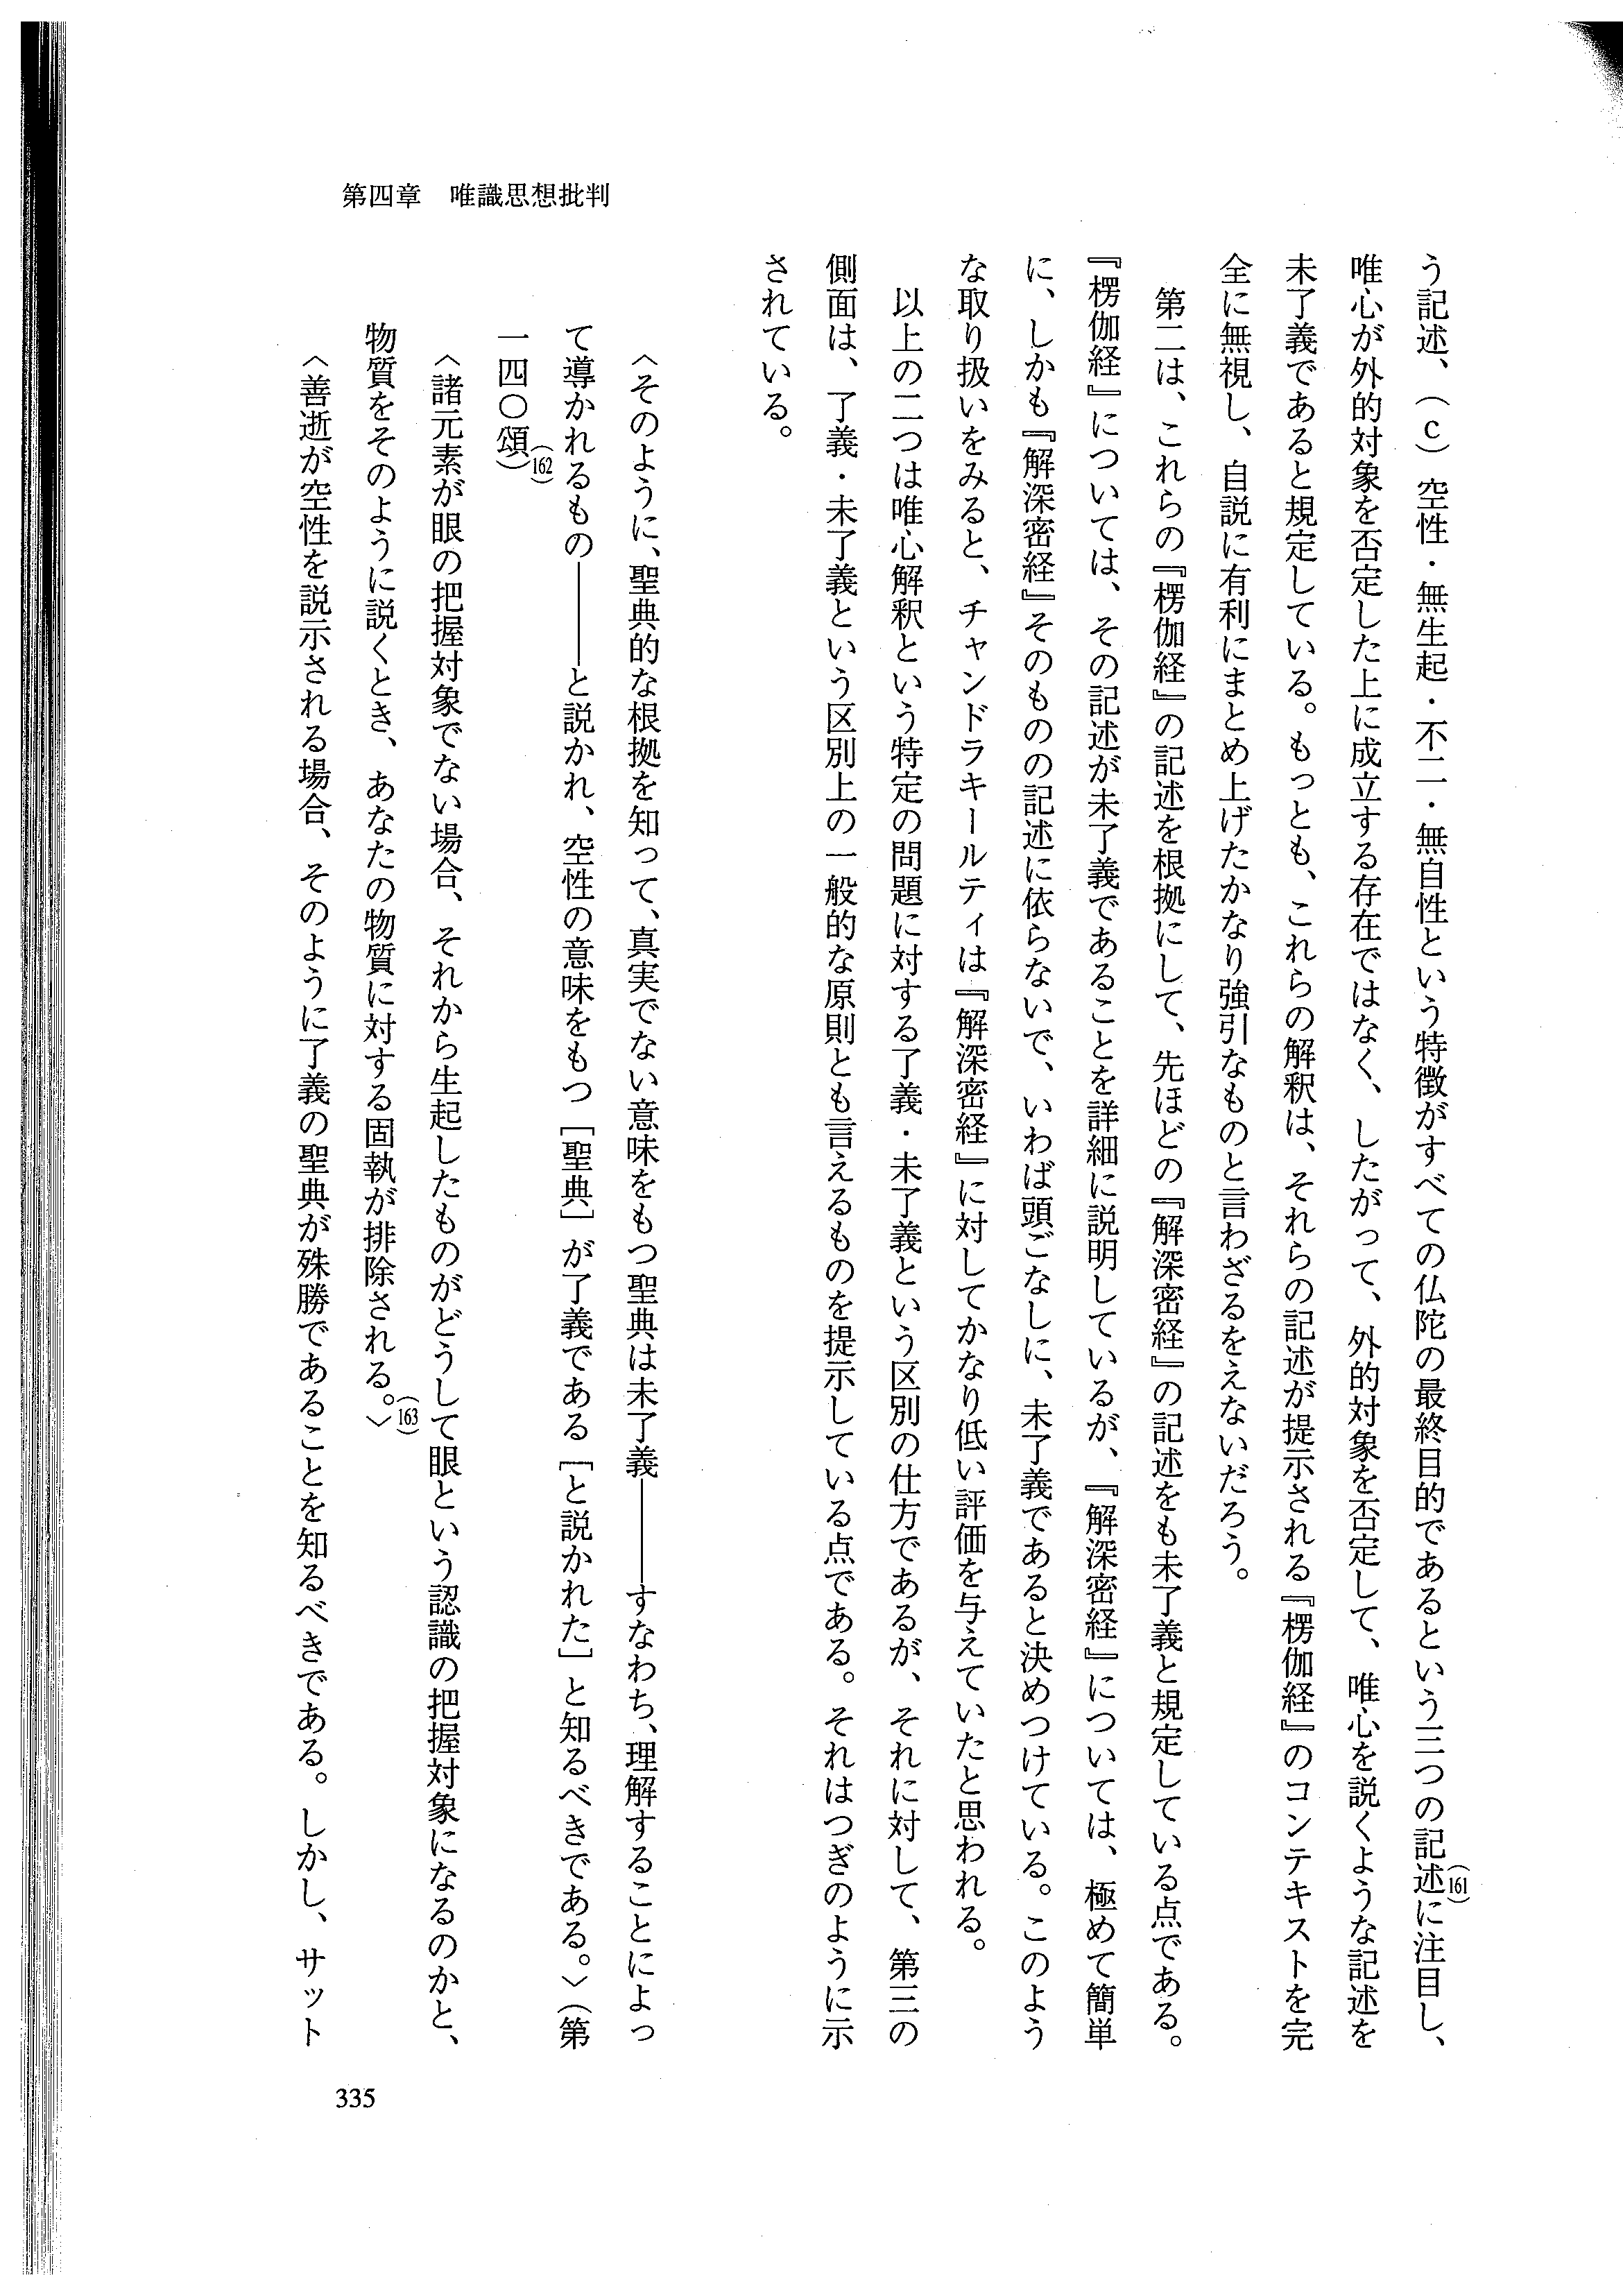 第四章　唯識思想批判
う記述、（ｃ）空性・無生起・不二・無自性という特徴がすべての仏陀の最終目的であるという三つの記述(161)に注目し、
唯心が外的対象を否定した上に成立する存在ではなく、したがって、外的対象を否定して、唯心を説くような記述を
未了義であると規定している。もっとも、これらの解釈は、それらの記述が提示される『楞伽経』のコンテキストを完
全に無視し、自説に有利にまとめ上げたかなり強引なものと言わざるをえないだろう。
　第二は、これらの『楞伽経』の記述を根拠にして、先ほどの『解深密経』の記述をも未了義と規定している点である。
『楞伽経』については、その記述が未了義であることを詳細に説明しているが、『解深密経』については、極めて簡単
に、しかも『解深密経』そのものの記述に依らないで、いわば頭ごなしに、未了義であると決めつけている。このよう
な取り扱いをみると、チャンドラキールティは『解深密経』に対してかなり低い評価を与えていたと思われる。
　以上の二つは唯心解釈という特定の問題に対する了義・未了義という区別の仕方であるが、それに対して、第三の
側面は、了義・未了義という区別上の一般的な原則とも言えるものを提示している点である。それはつぎのように示
されている。
〈そのように、聖典的な根拠を知って、真実でない意味をもつ聖典は未了義――すなわち、理解することによっ
て導かれるもの――と説かれ、空性の意味をもつ［聖典］が了義である［と説かれた］と知るべきである。〉（第
一四〇頌）(162)
〈諸元素が眼の把握対象でない場合、それから生起したものがどうして眼という認識の把握対象になるのかと、
物質をそのように説くとき、あなたの物質に対する固執が排除される。〉(163)
〈善逝が空性を説示される場合、そのように了義の聖典が殊勝であることを知るべきである。しかし、サット
335